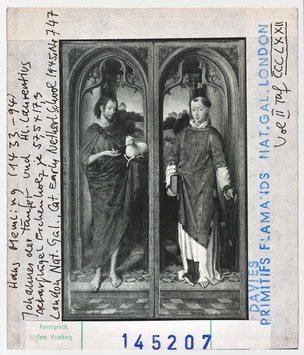 Hans Memling (1433-94)
Johannes der Täufer und Hl. Laurentius
Altarflügel Eichenholz je 57.5 x 17.3
London Nat. Gal., Cat Early Netherl. School 1945 Nr 747
DAVIES
PRIMITIFS FLAMANDS NAT. GAL. LONDON
Vol II Taf CCCLXXII
Kunstgesch.
Sem. Hamburg
145207